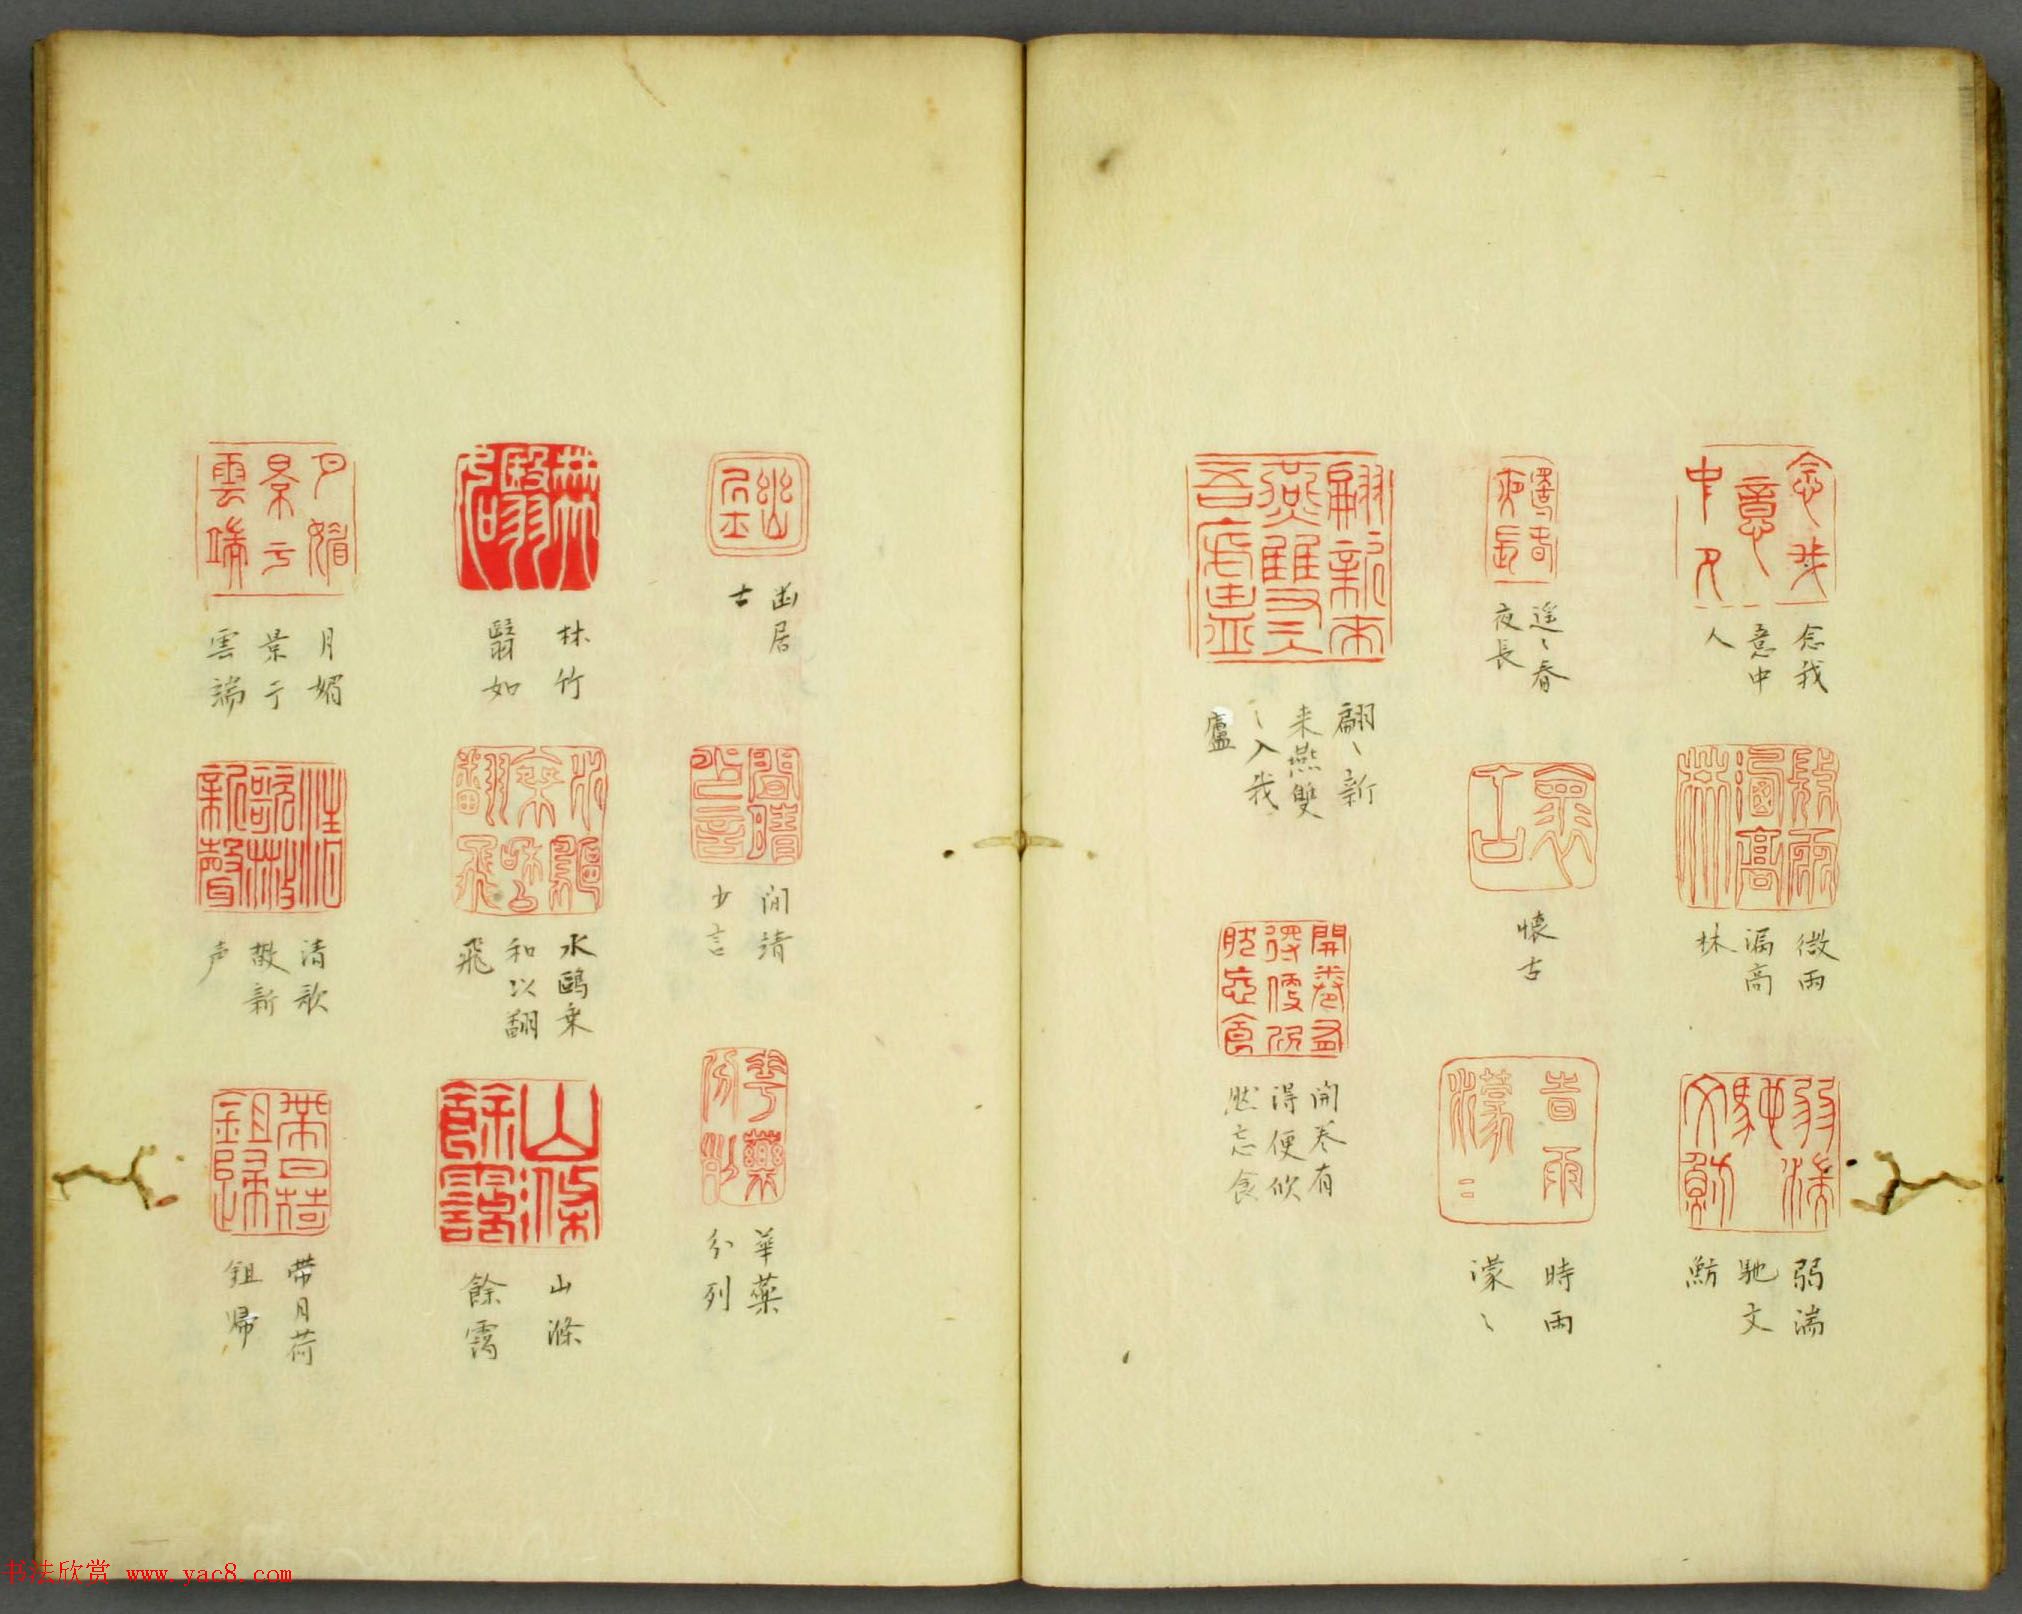 念我
意中
人
微雨
漏高
林
弱湍
馳文
魴
遥〻春
夜長
懐古
時雨
濛〻
翩〻新
来燕雙
〻入我
廬
開巻有
得便欣
然忘食
幽居
士
閒靖
少言
華薬
分列
林竹
翳如
水鷗乗
和以翻
飛
山滌
餘靄
月媚
景于
雲端
清歌
散新
声
帯月荷
鉏帰
书法欣赏 www.yac8.com